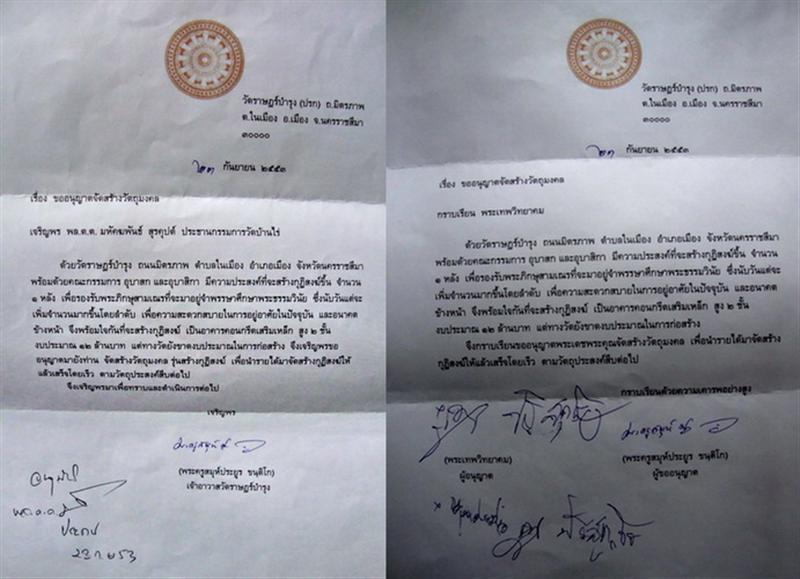 วัดราษฎร์บำรุง (ปรก) ถ.มิตรภาพ
ต.ในเมือง อ.เมือง จ.นครราชสีมา
๓๐๐๐๐
๒๓ กันยายน ๒๕๕๓
เรื่อง ขออนุญาตจัดสร้างวัตถุมงคล
เจริญพร พล.ต.ต. มหัคฆพันธ์ สุรคุปต์ ประธานกรรมการวัดบ้านไร่
ด้วยวัดราษฎร์บำรุง ถนนมิตรภาพ ตำบลในเมือง อำเภอเมือง จังหวัดนครราชสีมา
พร้อมด้วยคณะกรรมการ อุบาสก และอุบาสิกา มีความประสงค์ที่จะสร้างกุฏิสงฆ์ขึ้น จำนวน
๑ หลัง เพื่อรองรับพระภิกษุสามเณรที่จะมาอยู่จำพรรษาศึกษาพระธรรมวินัย ซึ่งนับวันแต่จะ
เพิ่มจำนวนมากขึ้นโดยลำดับ เพื่อความสะดวกสบายในการอยู่อาศัยในปัจจุบัน และอนาคต
ข้างหน้า จึงพร้อมใจกันที่จะสร้างกุฏิสงฆ์ เป็นอาคารคอนกรีตเสริมเหล็ก สูง ๒ ชั้น
งบประมาณ ๑๒ ล้านบาท แต่ทางวัดยังขาดงบประมาณในการก่อสร้าง จึงเจริญพรขอ
อนุญาตมายังท่าน จัดสร้างวัตถุมงคล รุ่นสร้างกุฏิสงฆ์ เพื่อนำรายได้มาจัดสร้างกุฏิสงฆ์ให้
แล้วเสร็จโดยเร็ว ตามวัตถุประสงค์สืบต่อไป
จึงเจริญพรมาเพื่อทราบและดำเนินการต่อไป
เจริญพร
(พระครูสมุห์ประยูร ชนฺติโก)
เจ้าอาวาสวัดราษฎร์บำรุง
พล.ต.ต.
ประธาน
23 ก.ย 53
วัดราษฎร์บำรุง (ปรก) ถ.มิตรภาพ
ต.ในเมือง อ.เมือง จ.นครราชสีมา
๓๐๐๐๐
๒๓ กันยายน ๒๕๕๓
เรื่อง ขออนุญาตจัดสร้างวัตถุมงคล
กราบเรียน พระเทพวิทยาคม
ด้วยวัดราษฎร์บำรุง ถนนมิตรภาพ ตำบลในเมือง อำเภอเมือง จังหวัดนครราชสีมา
พร้อมด้วยคณะกรรมการ อุบาสก และอุบาสิกา มีความประสงค์ที่จะสร้างกุฏิสงฆ์ขึ้น จำนวน
๑ หลัง เพื่อรองรับพระภิกษุสามเณรที่จะมาอยู่จำพรรษาศึกษาพระธรรมวินัย ซึ่งนับวันแต่จะ
เพิ่มจำนวนมากขึ้นโดยลำดับ เพื่อความสะดวกสบายในการอยู่อาศัยในปัจจุบัน และอนาคต
ข้างหน้า จึงพร้อมใจกันที่จะสร้างกุฏิสงฆ์ เป็นอาคารคอนกรีตเสริมเหล็ก สูง ๒ ชั้น
งบประมาณ ๑๒ ล้านบาท แต่ทางวัดยังขาดงบประมาณในการก่อสร้าง
จึงกราบเรียนขออนุญาตพระเดชพระคุณจัดสร้างวัตถุมงคล เพื่อนำรายได้มาจัดสร้าง
กุฏิสงฆ์ให้แล้วเสร็จโดยเร็ว ตามวัตถุประสงค์สืบต่อไป
กราบเรียนด้วยความเคารพอย่างสูง
(พระเทพวิทยาคม)
ผู้อนุญาต
(พระครูสมุห์ประยูร ชนฺติโก)
ผู้ขออนุญาต